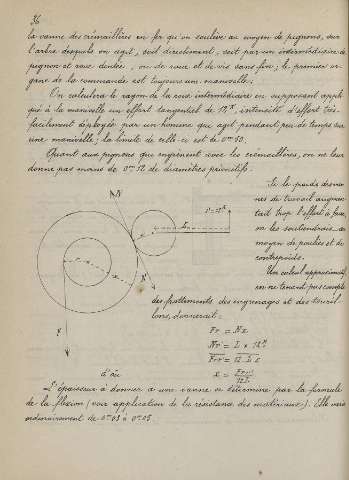 36
la vanne des crémaillères en fer qu'on soulève au moyen de pignons, sur
l'arbre desquels on agit, soit directement, soit par un intermédiaire de
pignon et roue dentée, ou de roue et de vis sans fin; le premier or-
gane de la commande est toujours un manivelle.
On calculera le rayon de la roue intermédiaire en supposant appli
qué à la manivelle un effort tangentiel de 12K, intensité d'effort très-
facilement déployée par un homme qui agit pendant peu de temps sur
une manivelle; la limite de celle-ci est de 0m50.
Quant aux pignons qui engrènent avec les crémaillères, on ne leur
donne pas moins de 0m12 de diamètres primitifs.
Si le poids des van-
nes de travail augmen-
tait trop l'effort à faire,
on les soutiendrait au
moyen de poulies et de
contrepoids.
Un calcul approximatif
en ne tenant pas compte
des frottements des engrenages et des touril-
lons, donnerait:
N
P=12K
L
r
x
N
F
Fr = Nx
Nr' = L x 12K
Frr' = 12 L x
d'où x = Frr'/12L
L'épaisseur à donner à une vanne se détermine par la formule
de la flexion (voir application de la résistance des matériaux). Elle varie
ordinairement de 0m03 à 0m05